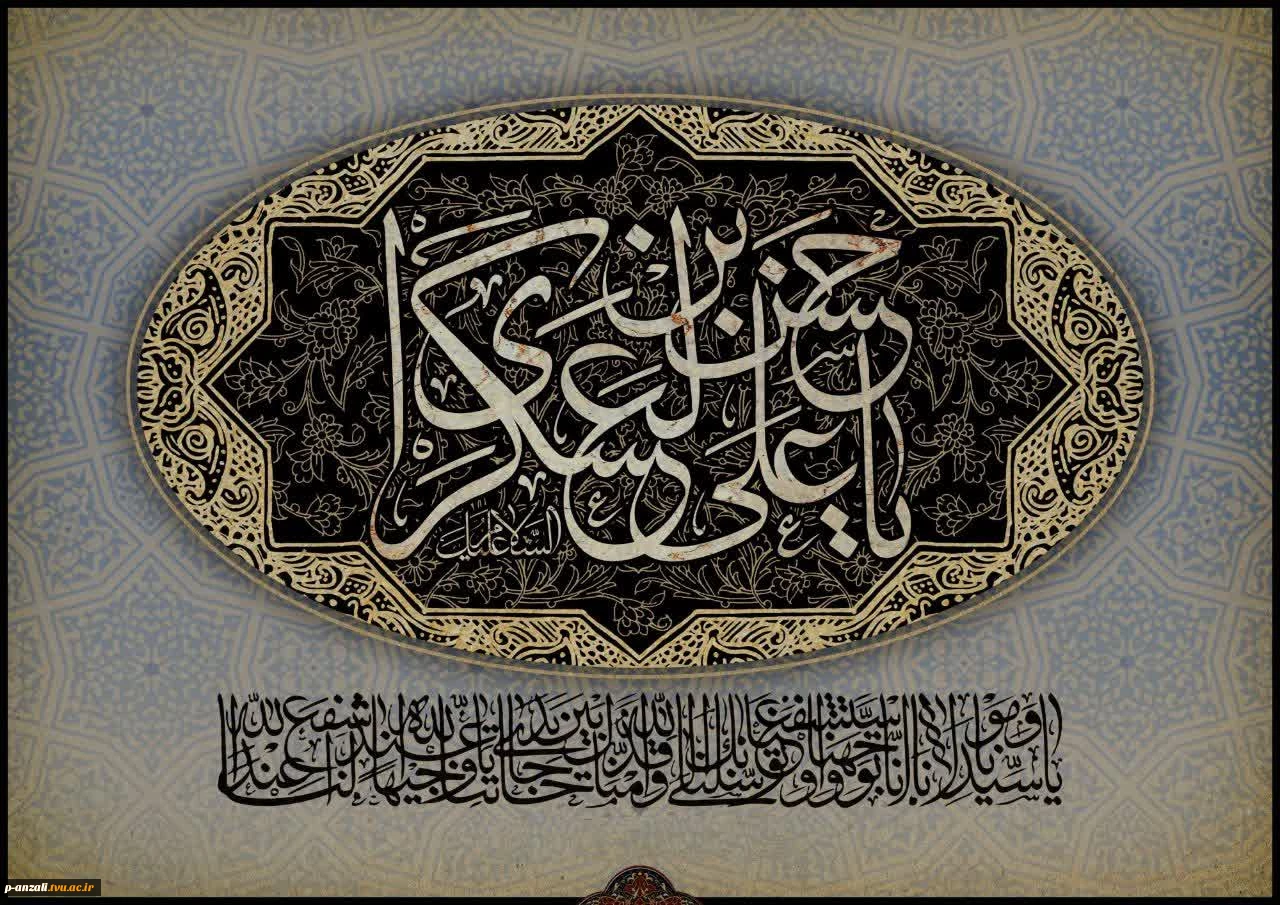 یا حسن بن علی العسکری
السلام علیک
یا سیدنا و مولانا انا توجهنا و استشفعنا و توسلنا بک الی الله و قدمناک بین یدی حاجاتنا یا وجیها عند الله اشفع لنا عند الله
p-anzali.tvu.ac.ir